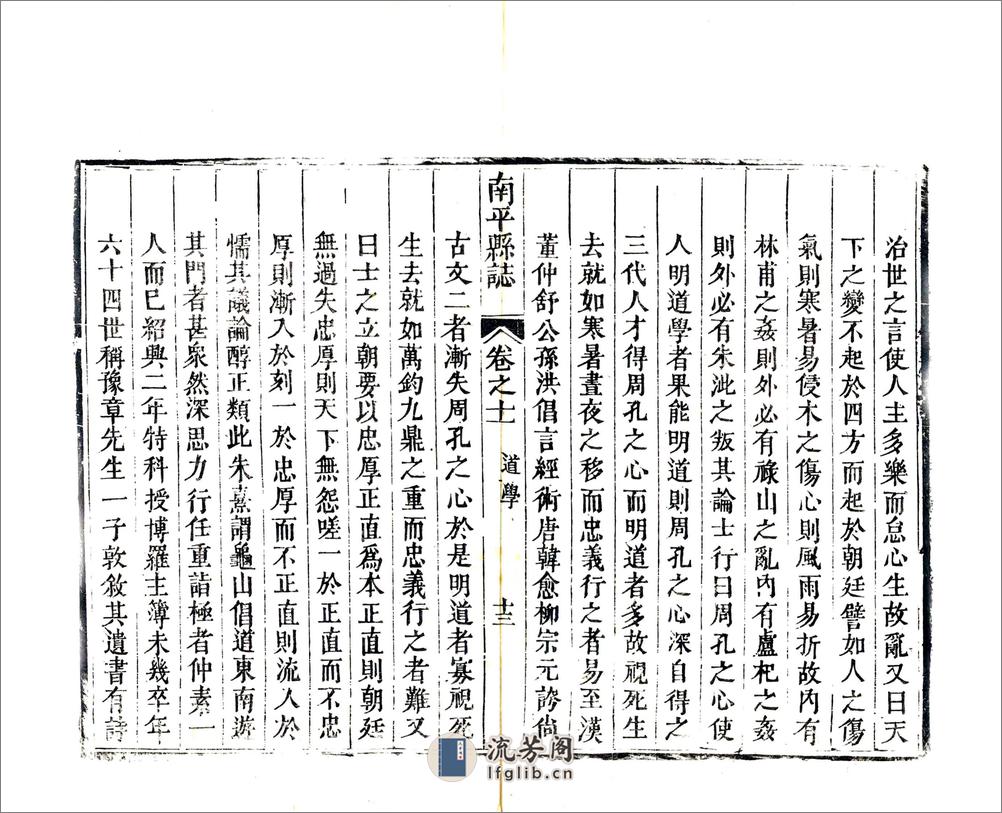 治世之言使人主多樂而怠心生故亂又曰天
下之變不起於四方而起於朝廷譬如人之傷
氣則寒暑易侵木之傷心則風雨易折故內有
林甫之姦則外必有祿山之亂內有盧杞之姦
則外必有朱泚之叛其論士行曰周孔之心使
人明道學者果能明道則周孔之心深自得之
三代人才得周孔之心而明道者多故視死生
去就如寒暑晝夜之移而忠義行之者易至漢
董仲舒公孫洪倡言經術唐韓愈柳宗元誇尚
南平縣誌 卷之十一 道學 十三
古文二者漸失周孔之心於是明道者寡視死
生去就如萬鈞九鼎之重而忠義行之者難又
曰士之立朝要以忠厚正直爲本正直則朝廷
無過失忠厚則天下無怨嗟一於正直而不忠
厚則漸入於刻一於忠厚而不正直則流入於
懦其議論醇正類此朱熹謂龜山倡道東南遊
其門者甚衆然深思力行任重詣極者仲素一
人而已紹興二年特科授博羅主簿未幾卒年
六十四世稱豫章先生一子敦敘其遺書有詩
流芳阁
lfglib.cn